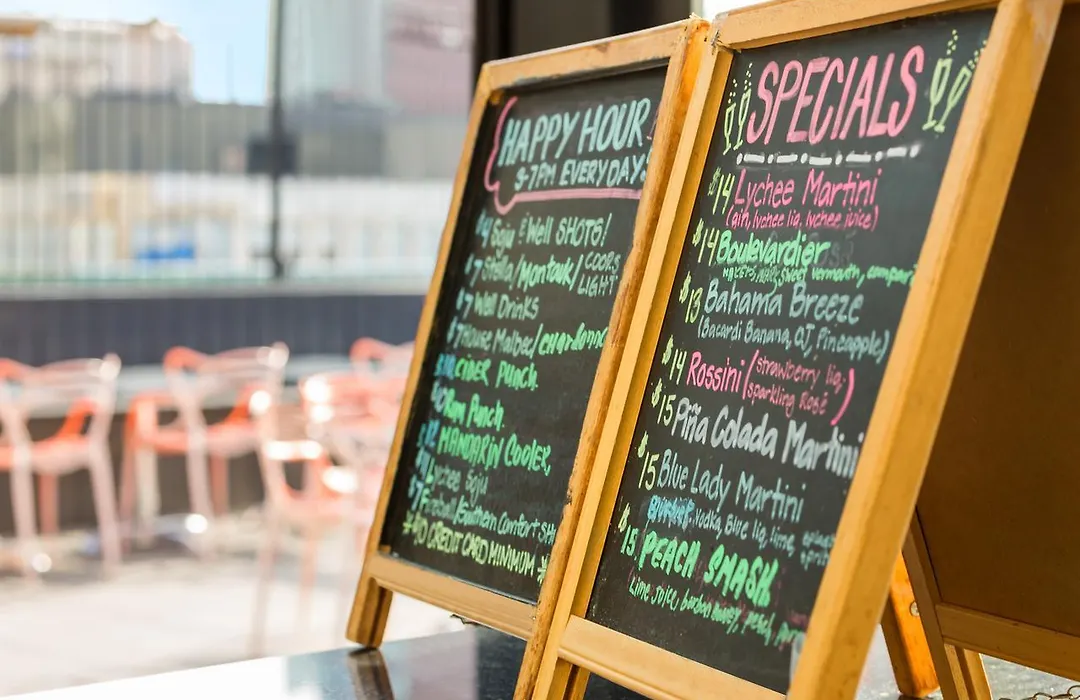 HAPPY HOUR!
3-7PM EVERYDAY!
$4 Soju & Well SHOTS!
$7 Stella/Montauk/COORS LIGHT
$7 Well DRINKS
$7 House Malbec/chardonnay
CIDER PUNCH
Rum Punch.
MANDARIN COOLER,
Lychee Soju
Fireball/Southern Comfort
*10 CREDIT CARD MINIMUM *
SPECIALS
$14 Lychee Martini
(gin, lychee liq, lychee juice)
$14 Boulevardier
Makers Mark, Sweet vermouth, campari
$13 Bahama Breeze
(Bacardi Banana, OJ, Pineapple)
$14 Rossini (strawberry liq.
sparkling Rosé)
$15 Piña Colada Martini
$15 Blue Lady Martini
vodka, blue liq, lime,
$15 PEACH SMASH
Lime juice, bourbon, honey, peach,